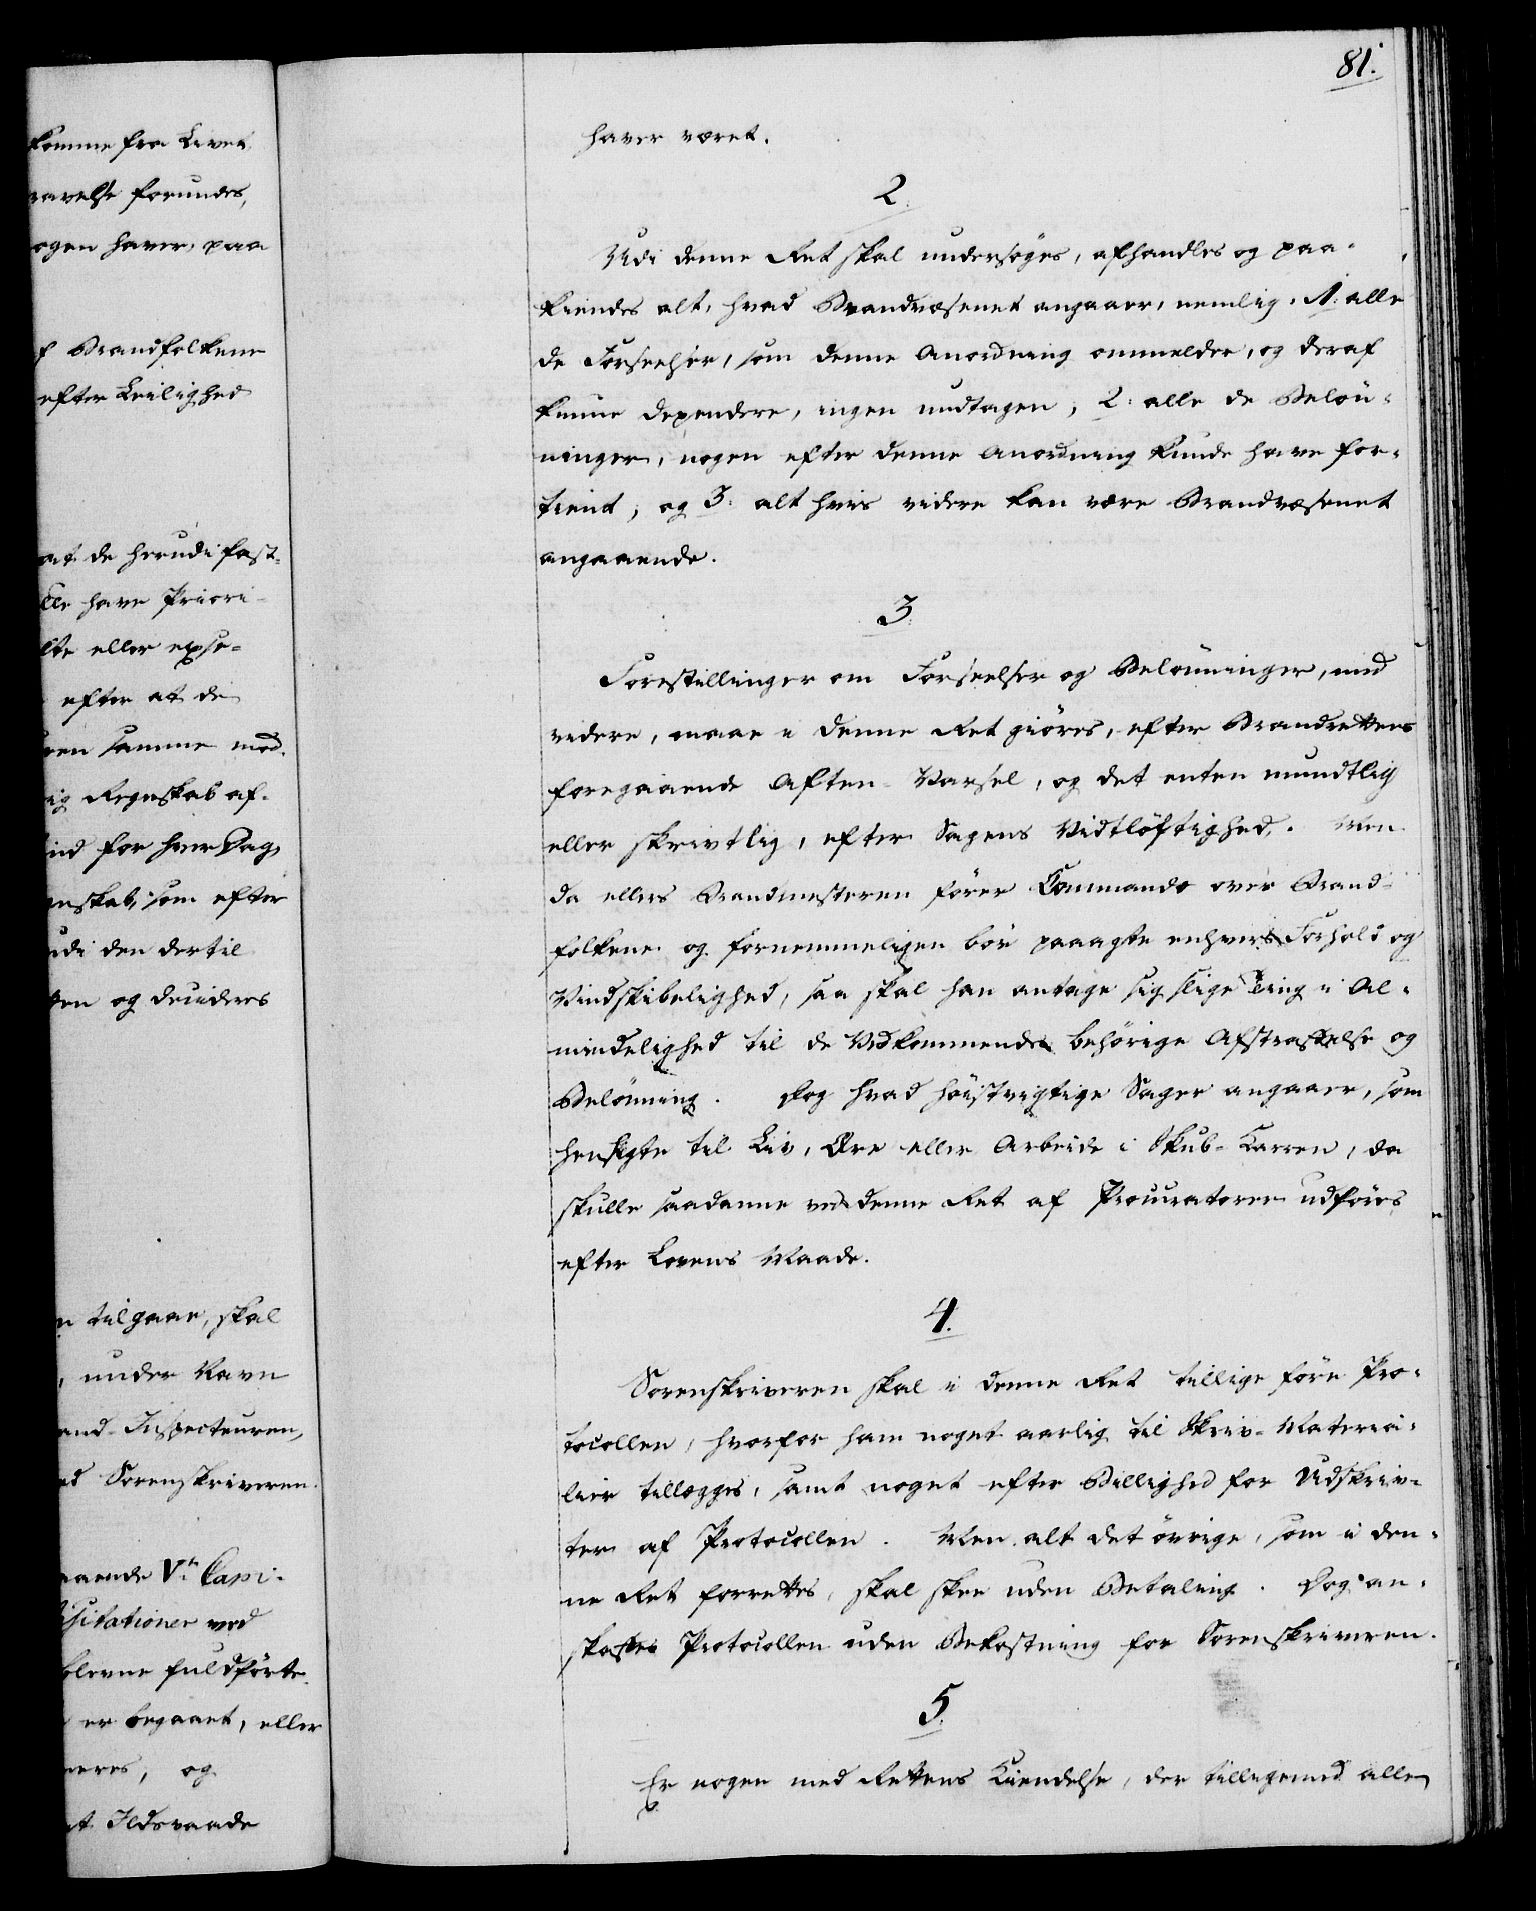 komme fra Livet
ravelse forundes,
ogen haver, paa
f Brandfolkene
efter Leilighed
at de herudi fast-
lle have Priori-
lte eller expe-
efter at de
ren samme med.
ig Regnskab af-
ind for hver Dag,
nskab, som efter
udi den dertil
ten og decideres
n tilgaar, skal
, under Navn
and-Inspecteuren,
ed Sorenskriveren.
aaende Vte Capi-
isitationer ved
blevne fuldførte
er begaaet, eller
neres, og
et Ildsvaade
81.
haver været.
2.
Udi denne Ret skal undersøges, afhandles og paa-
kiendes alt, hvad Brandvæsenet angaaer, nemlig, 1: alle
de Forseelser, som denne Anordning ommelder, og deraf
kunne dependere, ingen undtagen, 2: alle de Beløn-
ninger, nogen efter denne Anordning kunde have for-
tient, og 3: alt hvis videre kan være Brandvæsenet
angaaende.
3.
Forestillinger om Forseelser og Belønninger, med
videre, maae i denne Ret giøres, efter Brandrettens
foregaaende Aften-Varsel, og det enten mundtlig
eller skrivtlig, efter Sagens Vidtløftighed. Men
da ellers Brandmesteren fører Commando over Brand-
folkene og fornemmeligen bør paaagte enhvers Forhold og
Vindskibelighed, saa skal han antage sig slige Ting i Al-
mindelighed til de Vedkommendes behørige Afstraffelse og
Belønning. Dog hvad høistvigtige Sager angaaer, som
hensigte til Liv, Ære eller Arbeide i Skub-Karren, da
skulle saadanne ved denne Ret af Procuratorer udføres
efter Lovens Maade.
4.
Sorenskriveren skal i denne Ret tillige føre Pro-
tocollen, hvorfor ham noget aarlig til Skriv-Materia-
lier tillægges, samt noget efter Billighed for Udskriv-
ter af Protocollen. Men alt det øvrige, som i den-
ne Ret forrettes, skal skee uden Betaling. Dog an-
skaffes Protocollen uden Bekostning for Sorenskriveren.
5.
Er nogen med Rettens Kiendelse, der tilligemed alle